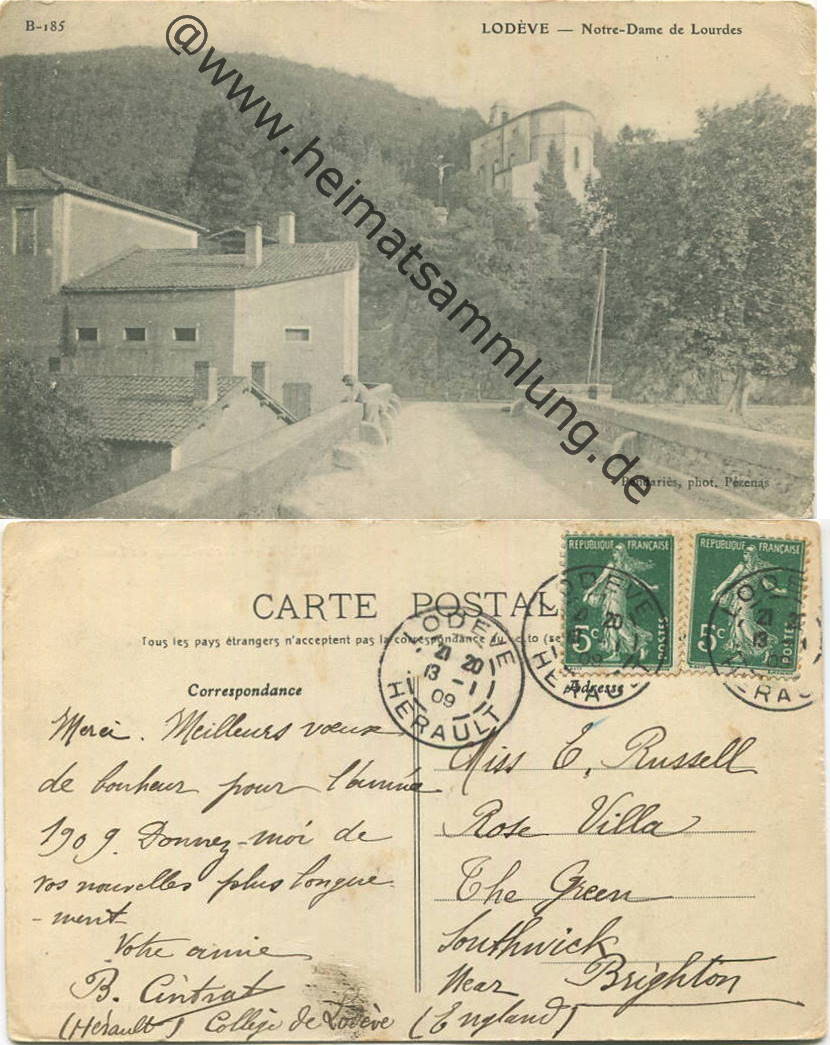 B-185
LODÈVE — Notre-Dame de Lourdes
@www.heimatsammlung.de
phot. Pézenas
CARTE POSTALE
Tous les pays étrangers n'acceptent pas la correspondance au
RÉPUBLIQUE FRANÇAISE
5c POSTES
RÉPUBLIQUE FRANÇAISE
5c POSTES
LODEVE
21 20
13 - 1
09
HERAULT
LODEVE
20
09
HERAU
LODE
21
13
09
HERAU
Correspondance
Adresse
Merci. Meilleurs vœux
de bonheur pour l'année
1909. Donnez-moi de
vos nouvelles plus longue
-ment
Votre amie
B. Cintrat
(Hérault) Collège de Lodève
Miss E. Russell
Rose Villa
The Green
Southwick
Near Brighton
(England)